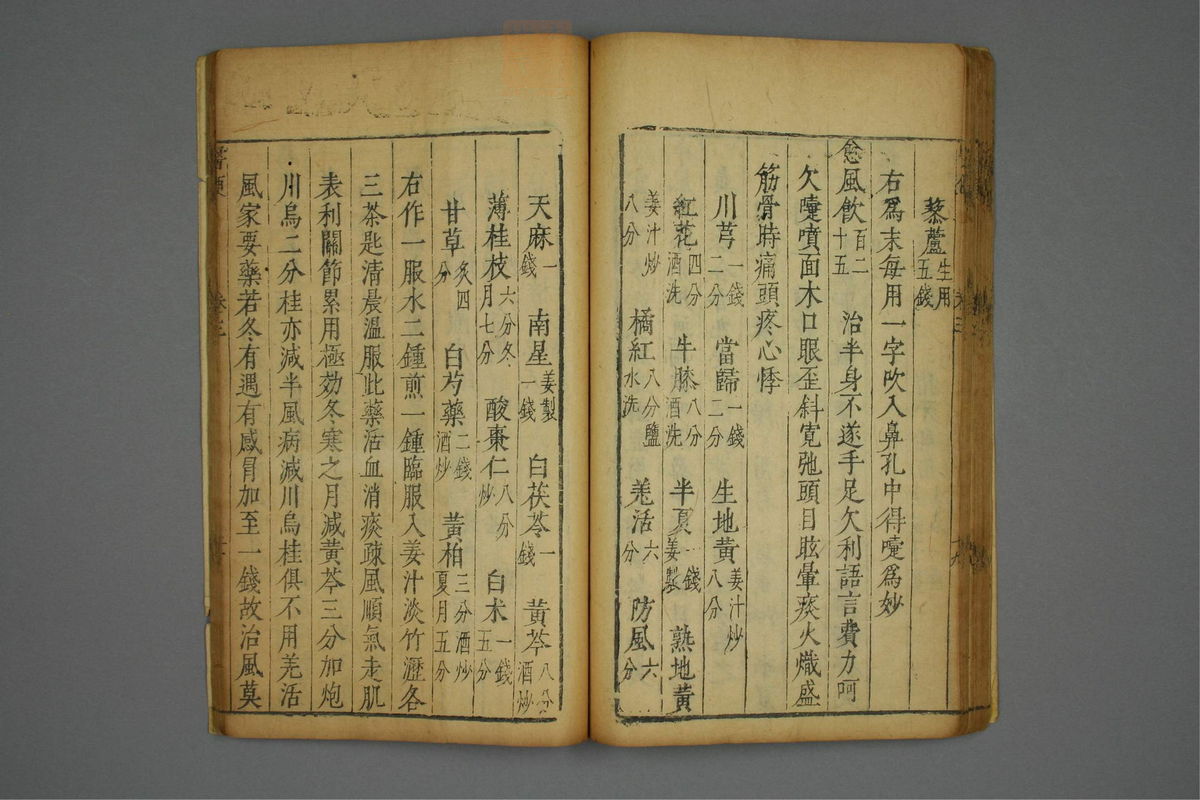 藜蘆生用五錢
右爲末每用一字吹入鼻孔中得嚏爲妙
愈風飮百二十五 治半身不遂手足欠利語言費力呵
欠嚏噴面木口眼歪斜寛弛頭目眩暈痰火熾盛
筋骨時痛頭疼心悸
川芎一錢二分 當歸一錢二分 生地黃姜汁炒八分
紅花四分酒洗 牛膝八分酒洗 半夏姜製錢 熟地黃
姜汁炒八分 橘紅八分鹽水洗 羌活六分 防風六分
天麻一錢 南星姜製一錢 白茯苓一錢 黃芩八分酒炒
薄桂枝六分冬月七分 酸棗仁八分炒 白朮一錢五分
甘草炙四分 白芍藥二錢酒炒 黃柏三分酒炒夏月五分
右作一服水二鍾煎一鍾臨服入姜汁淡竹瀝各
三茶匙清晨溫服此藥活血消痰疎風順氣走肌
表利關節累用極効冬寒之月減黃芩三分加炮
川烏二分桂亦減半風病減川烏桂俱不用羌活
風家要藥若冬有遇有感冐加至一錢故治風莫
醫便 卷三
卷三